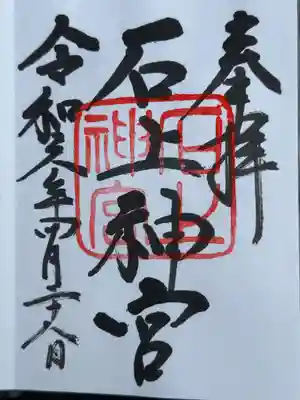 奉拝
石上神宮
石上神宮
令和六年四月二十八日